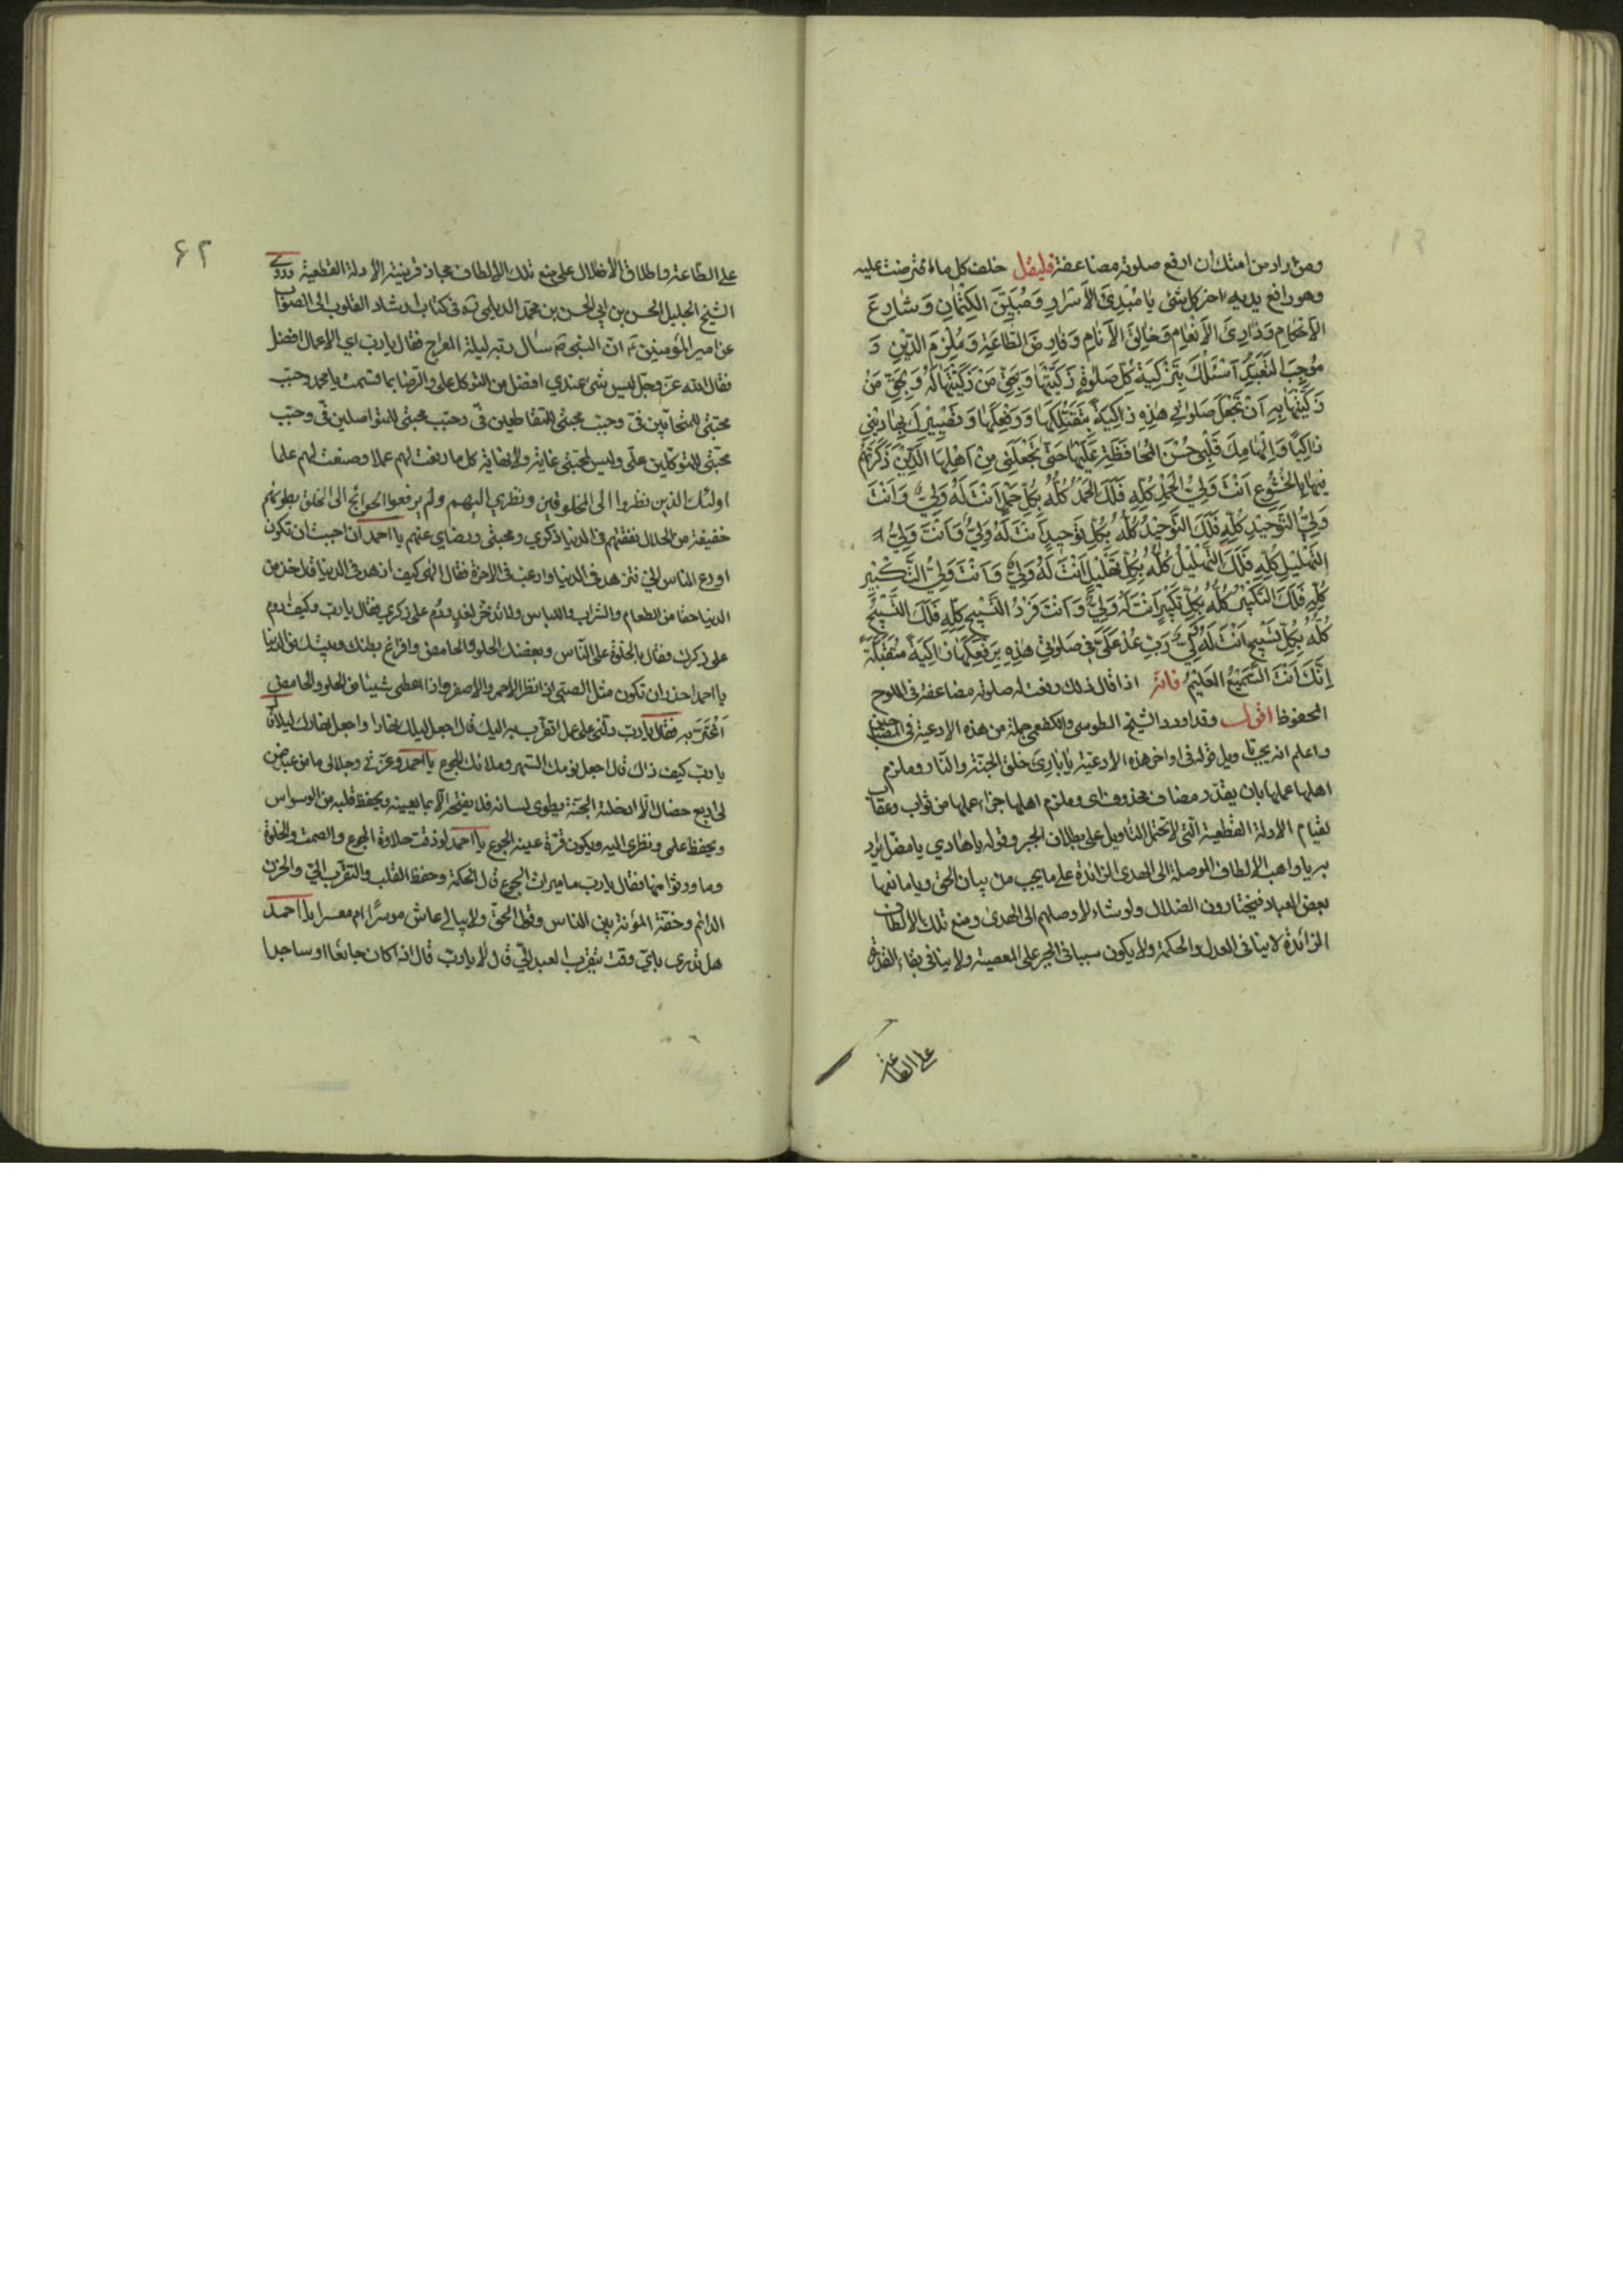 ومن اراد من امتك ان ارفع صلوته مضاعفة فليقل خلف كل ما افترضت عليه
وهو رافع يديه اخر كل شئ يا مُبْدِئَ الاَسْرارِ وَمُبَيِّنَ الكِتْمانِ وَشارِعَ
الاَحْكامِ وَذارِئَ الاَنْعامِ وَخالِقَ الاَنامِ وَفارِضَ الطّاعَةِ وَمُلْزِمَ الدّينِ وَ
مُوجِبَ التَّعَبُّدِ اَسْئَلُكَ بِتَزْكِيَةِ كُلِّ صَلوةٍ زَكَّيْتَها وَبِحَقِّ مَنْ زَكَّيْتَها لَهُ وَبِحَقِّ مَنْ
زَكَّيْتَها بِهِ اَنْ تَجْعَلَ صَلوتي هذِهِ زاكِيَةً بِتَقَبُّلِكَها وَرَفْعِكَها وَتَصْيِيرِكَ بِها ديني
زاكِيًا وَاِلْهامِكَ قَلْبي حُسْنَ المُحافَظَةِ عَلَيْها حَتّى تَجْعَلَني مِنْ اَهْلِهَا الَّذينَ ذَكَرْتَهُمْ
فيها بِالخُشُوعِ اَنْتَ وَلِيُّ الحَمْدِ كُلِّهِ فَلَكَ الحَمْدُ كُلُّهُ بِكُلِّ حَمْدٍ اَنْتَ لَهُ وَلِيٌّ وَاَنْتَ
وَلِيُّ التَّوْحيدِ كُلِّهِ فَلَكَ التَّوْحيدُ كُلُّهُ بِكُلِّ تَوْحيدٍ اَنْتَ لَهُ وَلِيٌّ وَاَنْتَ وَلِيُّ
التَّهْليلِ كُلِّهِ فَلَكَ التَّهْليلُ كُلُّهُ بِكُلِّ تَهْليلٍ اَنْتَ لَهُ وَلِيٌّ وَاَنْتَ وَلِيُّ التَّكْبيرِ
كُلِّهِ فَلَكَ التَّكْبيرُ كُلُّهُ بِكُلِّ تَكْبيرٍ اَنْتَ لَهُ وَلِيٌّ وَاَنْتَ التَّسْبيحِ كُلِّهِ فَلَكَ التَّسْبيحُ
كُلُّهُ بِكُلِّ تَسْبيحٍ اَنْتَ لَهُ وَلِيٌّ رَبِّ عُدْ عَلَيَّ في صَلوتي هذِهِ بِرَفْعِكَها زاكِيَةً مُتَقَبَّلَةً
اِنَّكَ اَنْتَ السَّميعُ العَليمُ فانه اذا قال ذلك رفعت له صلوته مضاعفة فى اللوح
المحفوظ اقول وقد اورد الشيخ الطوسى والكفعمى جملة من هذه الادعية فى المصباحين
واعلم انه يجب تاويل قوله فى اواخر هذه الادعية يا بارئ خلق الجنة والنار وملزم
اهلها عملها بان يقدر مضاف محذوف اى وملزم اهلها جزاء عملها من ثواب وعقاب
لقيام الادلة القطعية التى لا تحتمل التأويل على بطلان الجبر وقوله يا هادي يا مضل يريد
به يا واهب الالطاف الموصلة الى الهدى الزائدة على ما يجب من بيان الحق ويا مانعها
بعض العباد فيختارون الضلال ولو شاء لاوصلهم الى الهدى ومنع تلك الالطاف
الزائدة لا ينافى العدل والحكمة ولا يكون سببا فى الجبر على المعصية ولا ينافى بقاء القدرة
على الطاعة
۶۲
على الطاعة واطلاق الاضلال على منع تلك الالطاف مجاز قرينته الادلة القطعية وروى
الشيخ الجليل الحسن بن ابي الحسن بن محمد الديلمي فى كتاب ارشاد القلوب الى الصواب
عن امير المؤمنين ان النبى سال ربه ليلة المعراج فقال يا رب اي الاعمال افضل
فقال الله عز وجل ليس شئ عندي افضل من التوكل على والرضا بما قسمت يا محمد وجبت
محبتي للمتحابين فيّ وجبت محبتي للمتقاطعين فيّ وجبت محبتي للمتواصلين فيّ وجبت
محبتي للمتوكلين على وليس لمحبتي غاية ولا نهاية كلما رفعت لهم عملا وضعت لهم علما
اولئك الذين نظروا الى المخلوقين ونظري اليهم ولم يرفعوا الحوائج الى الخلق بطونهم
خفيفة من الحلال نفقتهم فى الدنيا ذكري ومحبتي ورضاي عنهم يا احمد ان احببت ان تكون
اورع الناس فازهد فى الدنيا وارغب فى الاخرة فقال الهى كيف ازهد فى الدنيا قال خذ من
الدنيا حفنا من الطعام والشراب واللباس ولا تدخر لغد ودم على ذكري فقال يا رب وكيف ادوم
على ذكرك فقال بالخلوة عن الناس وبغضك الحلو والحامض وافراغ بطنك وبيتك من الدنيا
يا احمد احذر ان تكون مثل الصبي اذا نظر الاحمر والاصفر واذا اعطى شيئا من الحلو والحامض
اغترّ به فقال يا رب دلني على عمل اتقرب به اليك قال اجعل ليلك نهارا واجعل نهارك ليلا قال
يا رب كيف ذلك قال اجعل نومك السهر وملائك الجوع يا احمد وعزتي وجلالى ما من عبد ضمن
لى اربع خصال الا ادخلته الجنة يطوى لسانه فلا يفتحه الا بما يعينه ويحفظ قلبه من الوسواس
ويحفظ علمى ونظرى اليه ويكون قرة عينه الجوع يا احمد لو ذقت حلاوة الجوع والصمت والخلوة
وما ورثوا منها فقال يا رب ما ميراث الجوع قال الحكمة وحفظ القلب والتقرب اليّ والحزن
الدائم وخفة المؤنة بين الناس وقول الحق ولا يبالى عاش موسرا ام معسرا يا احمد
هل تدرى باي وقت يتقرب العبد اليّ قال لا يا رب قال اذا كان جائعا او ساجدا